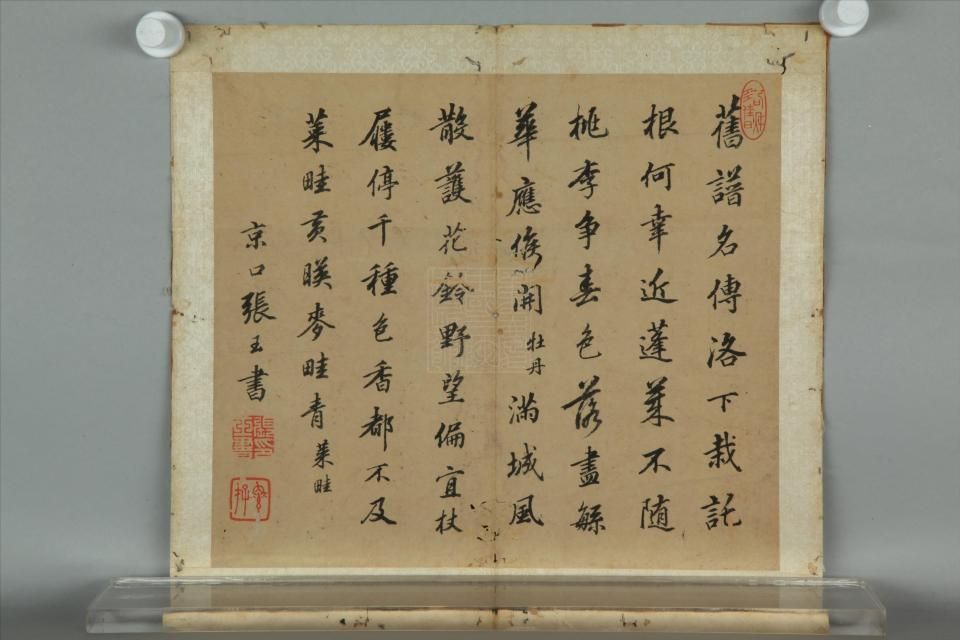 舊譜名傳洛下栽託
根何幸近蓬萊不随
桃李争春色落盡緐
華應候開 牡丹 滿城風
散護花鈴野望偏宜杖
屨停千種色香都不及
菜畦黄暎麥畦青 菜畦
京口張玉書